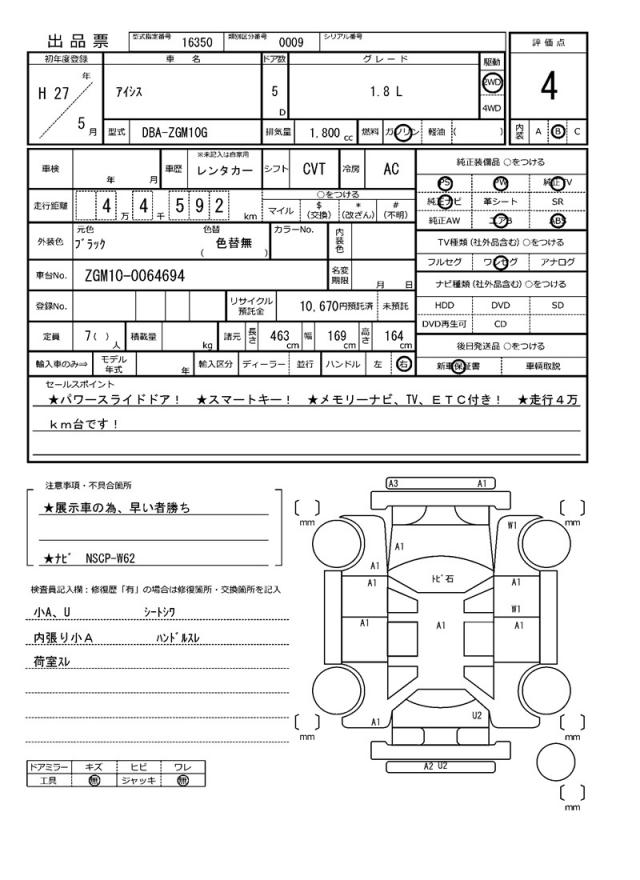 出品票 型式指定番号 16350 類別区分番号 0009 シリアル番号
初年度登録 車名 ドア数 グレード 駆動 評価点
H 27 年 5 月 アイシス 5 D 1.8 L 2WD 4WD 4
型式 DBA-ZGM10G 排気量 1.800 cc 燃料 ガソリン 軽油 ( ) 内装 A B C
車検 年 月 車歴 ※未記入は自家用 レンタカー シフト CVT 冷房 AC
純正装備品 ○をつける
PS PW 純正TV
純正ナビ 革シート SR
純正AW エアB ABS
走行距離 4 万 4 千 5 9 2 km ○をつける
マイル $ (交換) * (改ざん) # (不明)
外装色 元色 ブラック 色替 色替無 ( ) カラーNo. 内装色
TV種類(社外品含む)○をつける
フルセグ ワンセグ アナログ
車台No. ZGM10-0064694 名変期限 月 日
ナビ種類(社外品含む)○をつける
HDD DVD SD
DVD再生可 CD
登録No. リサイクル預託金 10,670円預託済 未預託
定員 7( ) 人 積載量 kg 諸元 長さ 463 cm 幅 169 cm 高さ 164 cm
後日発送品 ○をつける
新車保証書 車輌取説
輸入車のみ⇒ モデル年式 年 輸入区分 ディーラー 並行 ハンドル 左 右
セールスポイント
★パワースライドドア! ★スマートキー! ★メモリーナビ、TV、ETC付き! ★走行4万
km台です!
注意事項・不具合箇所
★展示車の為、早い者勝ち
★ナビ NSCP-W62
検査員記入欄:修復歴「有」の場合は修復箇所・交換箇所を記入
小A、U シートシワ
内張り小A ハンドルスレ
荷室スレ
ドアミラー キズ ヒビ ワレ
工具 無 ジャッキ 無
A3 A1
mm mm
W1
A1
トビ石
A1 A1
A1 W1
A1 A1 A1
A1 U2
mm mm
A2 U2
mm